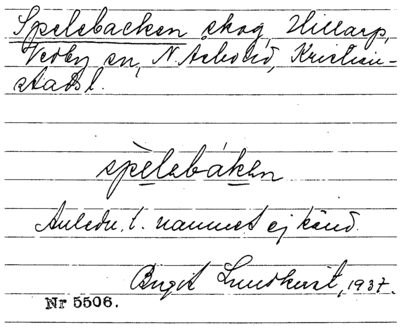 Spelebacken skog, Hillarp,
Vedby sn, N. Åsbo hd, Kristian-
stads l.
spèlebáken
Anledn. t. namnet ej känd.
Birgit Lundkvist, 1937.
Nr 5506.